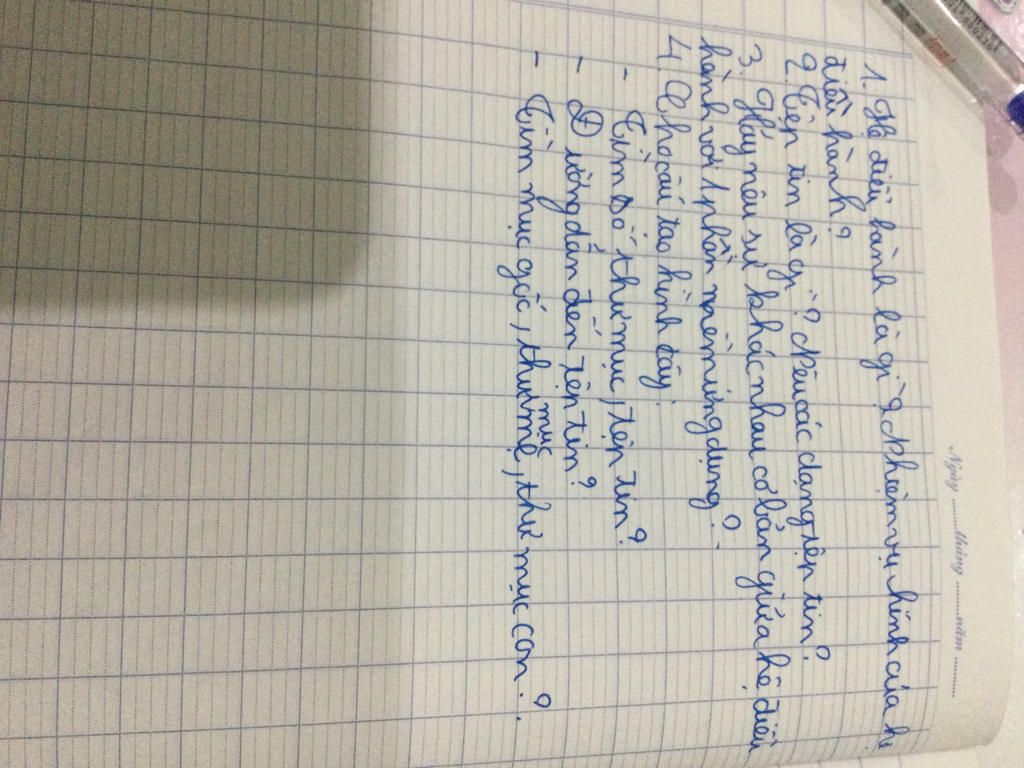 Ngày ........ tháng ........ năm ............
1. Hệ điều hành là gì? Nhiệm vụ hính của hệ
điều hành?
2. Tệp tin là gì? Nêu các dạng tệp tin?
3. Hãy nêu sự khác nhau cơ bản giữa hệ điều
hành với 1 phần mềm ứng dụng?
4) Cho cấu tạo hình cây:
- Tìm số thư mục, tệp tin?
- Đường dẫn đến tệp tin?
- Tìm mục gốc, thư mục mẹ, thư mục con?